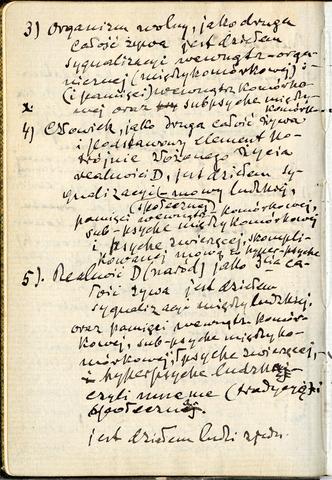 3) Organizm wolny, jako druga
całość żywa jest dziełem
sygnalizacji wewnątrz-orga-
nicznej (międzykomórkowej) i
(i pamięci) wewnątrz komórko-
x wej oraz sub psyche między
komórk-
4) Człowiek, jako druga całość żywa
i podstawowy element po-
trójnie złożonego życia
realności D, jest dziełem sy-
gnalizacji - mowy ludzkiej,
(społecznej)
pamięci wewnątrz-komórkowej,
sub-psyche międzykomórkowej
i psyche zwierzęcej, skompli-
kowanej mową - hyper-psyche
5). Realność D (naród) jako 3cia ca-
łość żywa jest dziełem
sygnalizacji międzyludzkiej,
oraz pamięci wewnątrz komór-
kowej, sub-psyche międzyko-
mórkowej, psyche zwierzęcej,
i hyperpsyche ludzkiej
czyli mneme (tradycji)
społecznej.
jest dziełem ludzi